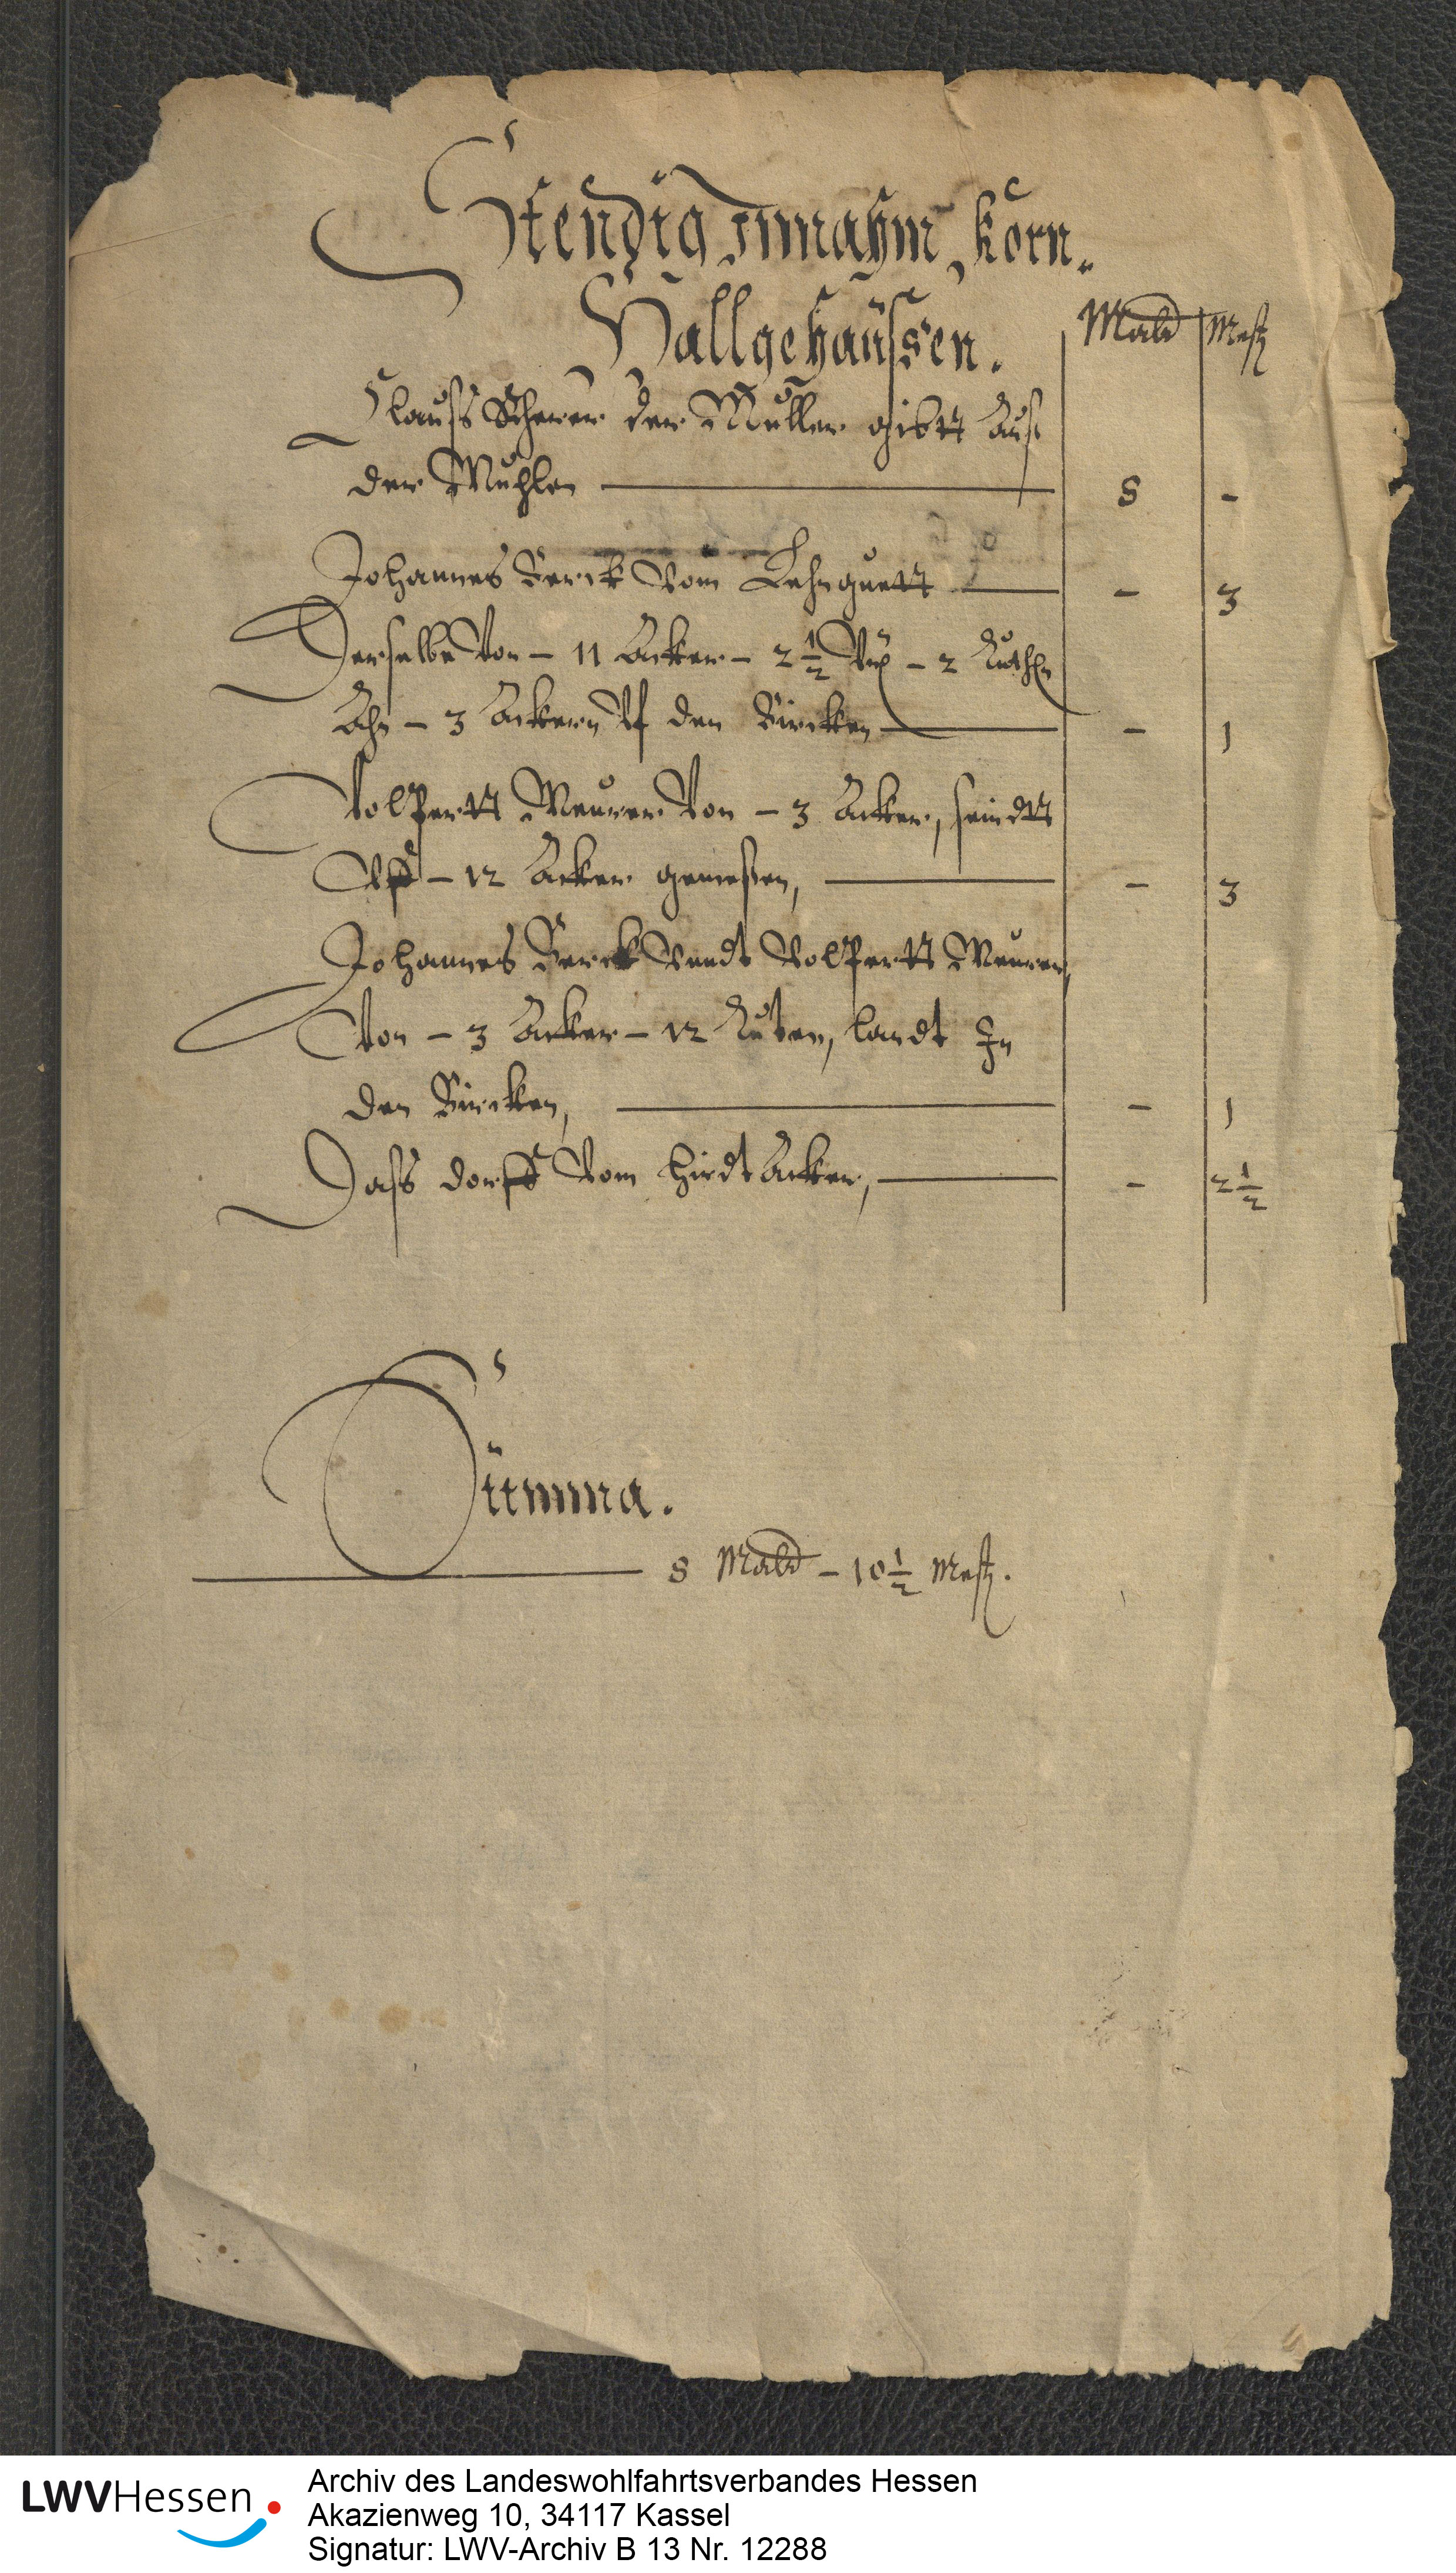 Stendig Innahm Korn.
Hallgehaussen.
Mald Mesz
Clauss Scherer der Müller gibtt Auß
der Mühlen 8 -
Johannes Berck vom Lehnguett - 3
Derselbe von - 11 Acker - 2 1/2 - 2 Ruthen
- 3 Ackern vf den Bircken - 1
Volpertt Meurer von - 3 Acker, seindtt
vff - 12 Acker gemeßen, - 3
Johannes Berck vnndt Volpertt Meurer,
von - 3 Acker - 12 Ruten, landt In
den Bircken, - 1
Dass dorff vom hirdt Acker, - 2 1/2
Summa.
8 Mald - 10 1/2 Mesz.
LWVHessen
Archiv des Landeswohlfahrtsverbandes Hessen
Akazienweg 10, 34117 Kassel
Signatur: LWV-Archiv B 13 Nr. 12288